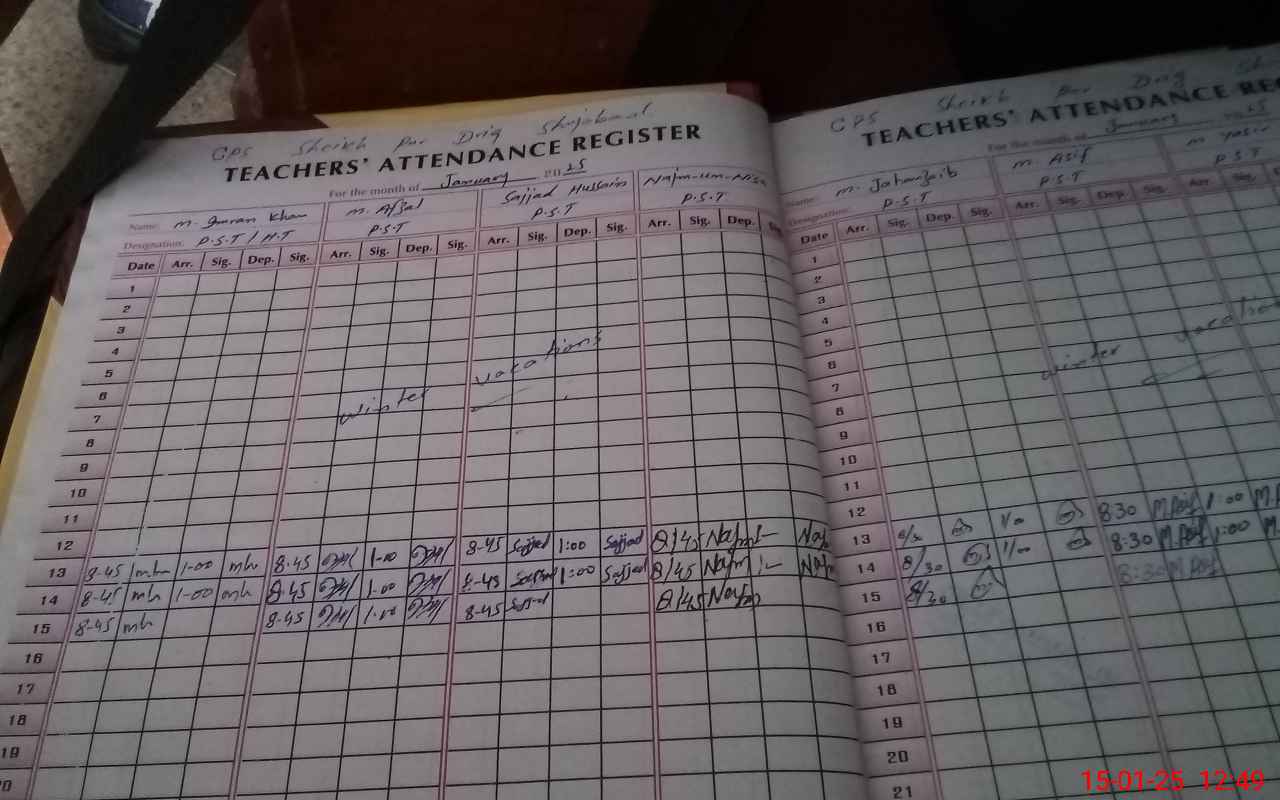 GPS Sheikh Pur Drig Shujabad
TEACHERS' ATTENDANCE REGISTER
For the month of January 2025
Name: M. Imran Khan M. Afzal Sajjad Hussain Najm-un-Nisa
Designation: P.S.T / H.T P.S.T P.S.T P.S.T
Date Arr. Sig. Dep. Sig. Arr. Sig. Dep. Sig. Arr. Sig. Dep. Sig. Arr. Sig. Dep.
1
2
3
4
5
6
7
winter vacations
8
9
10
11
12
13 8-45 1-00 8-45 1-00 8-45 Sajjad 1:00 Sajjad 8/45 Najm 1-
14 8-45 mh 1-00 mh 8-45 1-00 8-45 1:00 Sajjad 8/45 Najm 1-
15 8-45 mh 8-45 1-00 8-45 8/45 Najm
16
17
18
19
GPS Sheikh Pur Drig
TEACHERS' ATTENDANCE REG
For the month of January 25
Name: M. Jahanzaib M. Asif M. Yasir
Designation: P.S.T P.S.T P.S.T
Date Arr. Sig. Dep. Sig. Arr. Sig. Dep. Sig. Arr. Sig.
1
2
3
4
5
6
7
winter vacation
8
9
10
11
12
13 8/30 1/00 8-30 M Asif 1:00
14 8/30 1/00 8-30 M Asif 1:00
15 8/30 8-30 M Asif
16
17
18
19
20
21
15-01-25 12:49